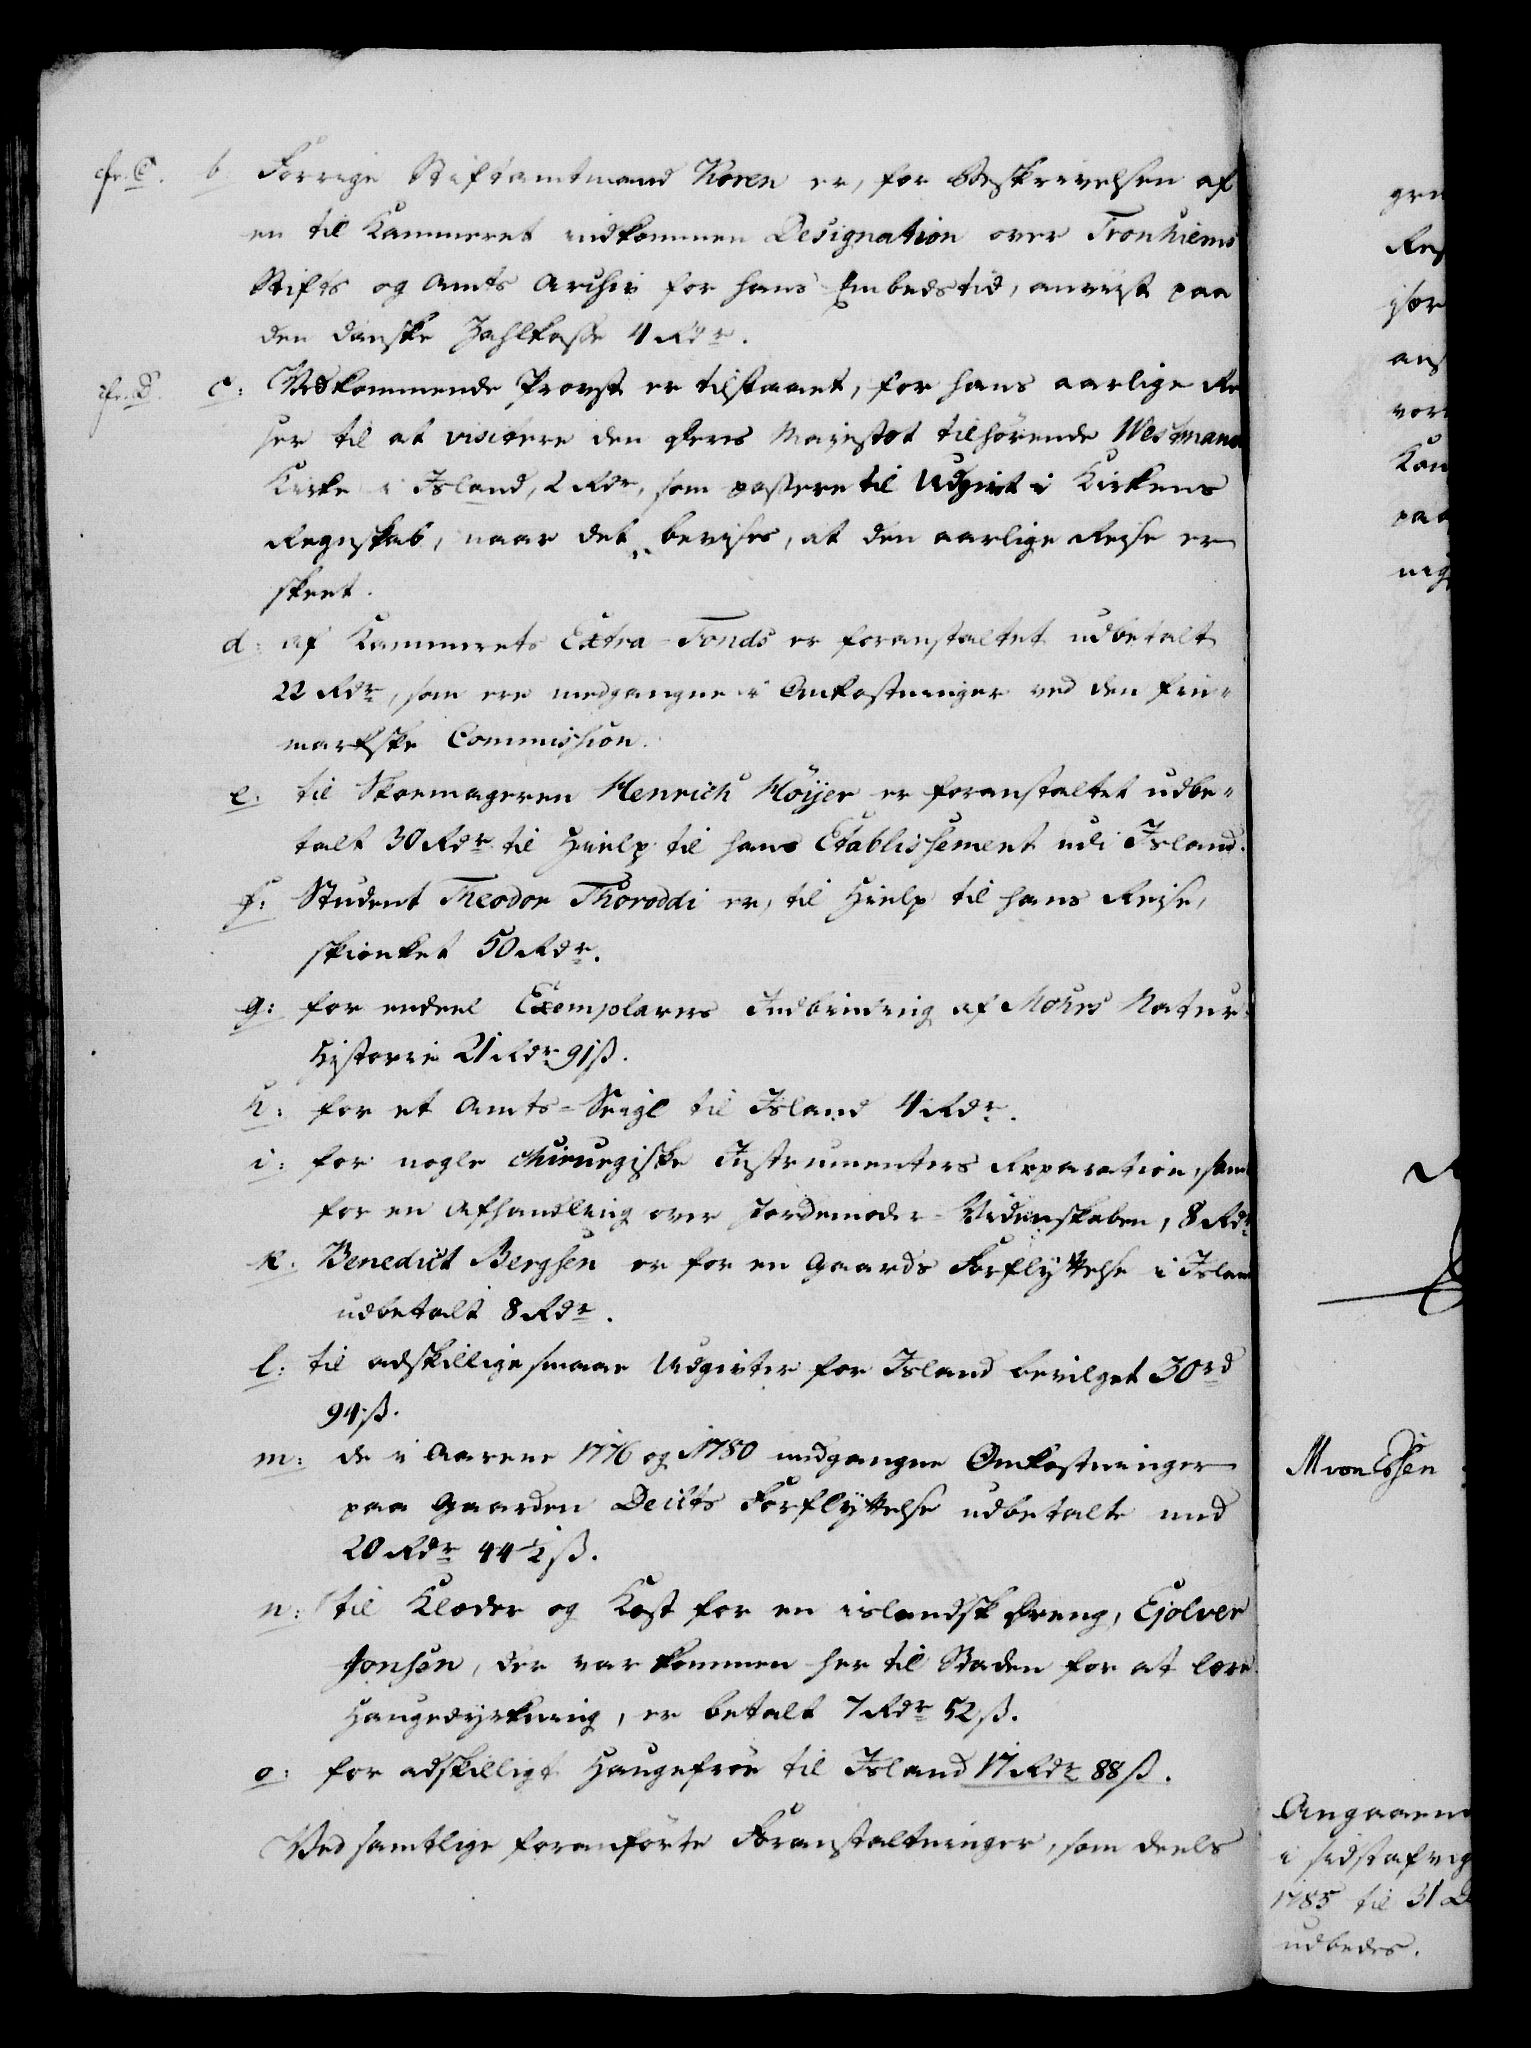 cfr. C. b. Forrige Stiftamtmand Koren er, for Beskrivelsen af
en til Kammeret indkommen Designation over Tronhiems
Stifts og Amts Archiv for hans Embedstid, anviist paa
den danske Zahlkasse 4 Rdr.
cfr. D. c: Vedkommende Provst er tilstaaet, for hans aarlige Re
ser til at visitere den Deres Majestæt tilhørende Westmanø
Kirke i Island, 2 Rdr, som passere til Udgivt i Kirkens
Regnskab, naar det bevises, at den aarlige Reise er
skeet.
d: af Kammerets Extra-Fonds er foranstaltet udbetalt
22 Rdr, som ere medgangne i Omkostninger ved den fin-
markske Commission.
e. til Skoemageren Henrich Höyer er foranstaltet udbe-
talt 30 Rdr til Hielp til hans Etablissement udi Island.
f: Student Theodor Thoroddi er, til Hielp til hans Reise,
skienket 50 Rdr.
g: for endeel Exemplarers Indbinding af Mohrs Natur-
Historie 21 Rdr 91 ß.
h: for et Amts-Seigl til Island 4 Rdr.
i: for nogle chirurgiske Instrumenters Reparation, samt
for en Afhandling over Jordemoder-Videnskaben, 8 Rdr
k. Benedict Bergsen er for en Gaards Forflyttelse i Island
udbetalt 8 Rdr.
l: til adskillige smaae Udgivter for Island bevilget 30 rd
94 ß.
m: de i Aarene 1776 og 1780 medgangne Omkostninger
paa Gaarden Deilts Forflyttelse udbetalte med
20 Rdr 44 1/2 ß.
n: til Klæder og Kost for en islandsk Dreng, Ejolver
Jonsen, der var kommen her til Staden for at lære
Haugedyrkning, er betalt 7 Rdr 52 ß.
o: for adskilligt Haugefrøe til Island 17 Rdr 88 ß.
Ved samtlige foranførte Foranstaltninger, som deels
M von Essen
Angaaen
i sidstafvig
1785 til 31 D
udbedes.